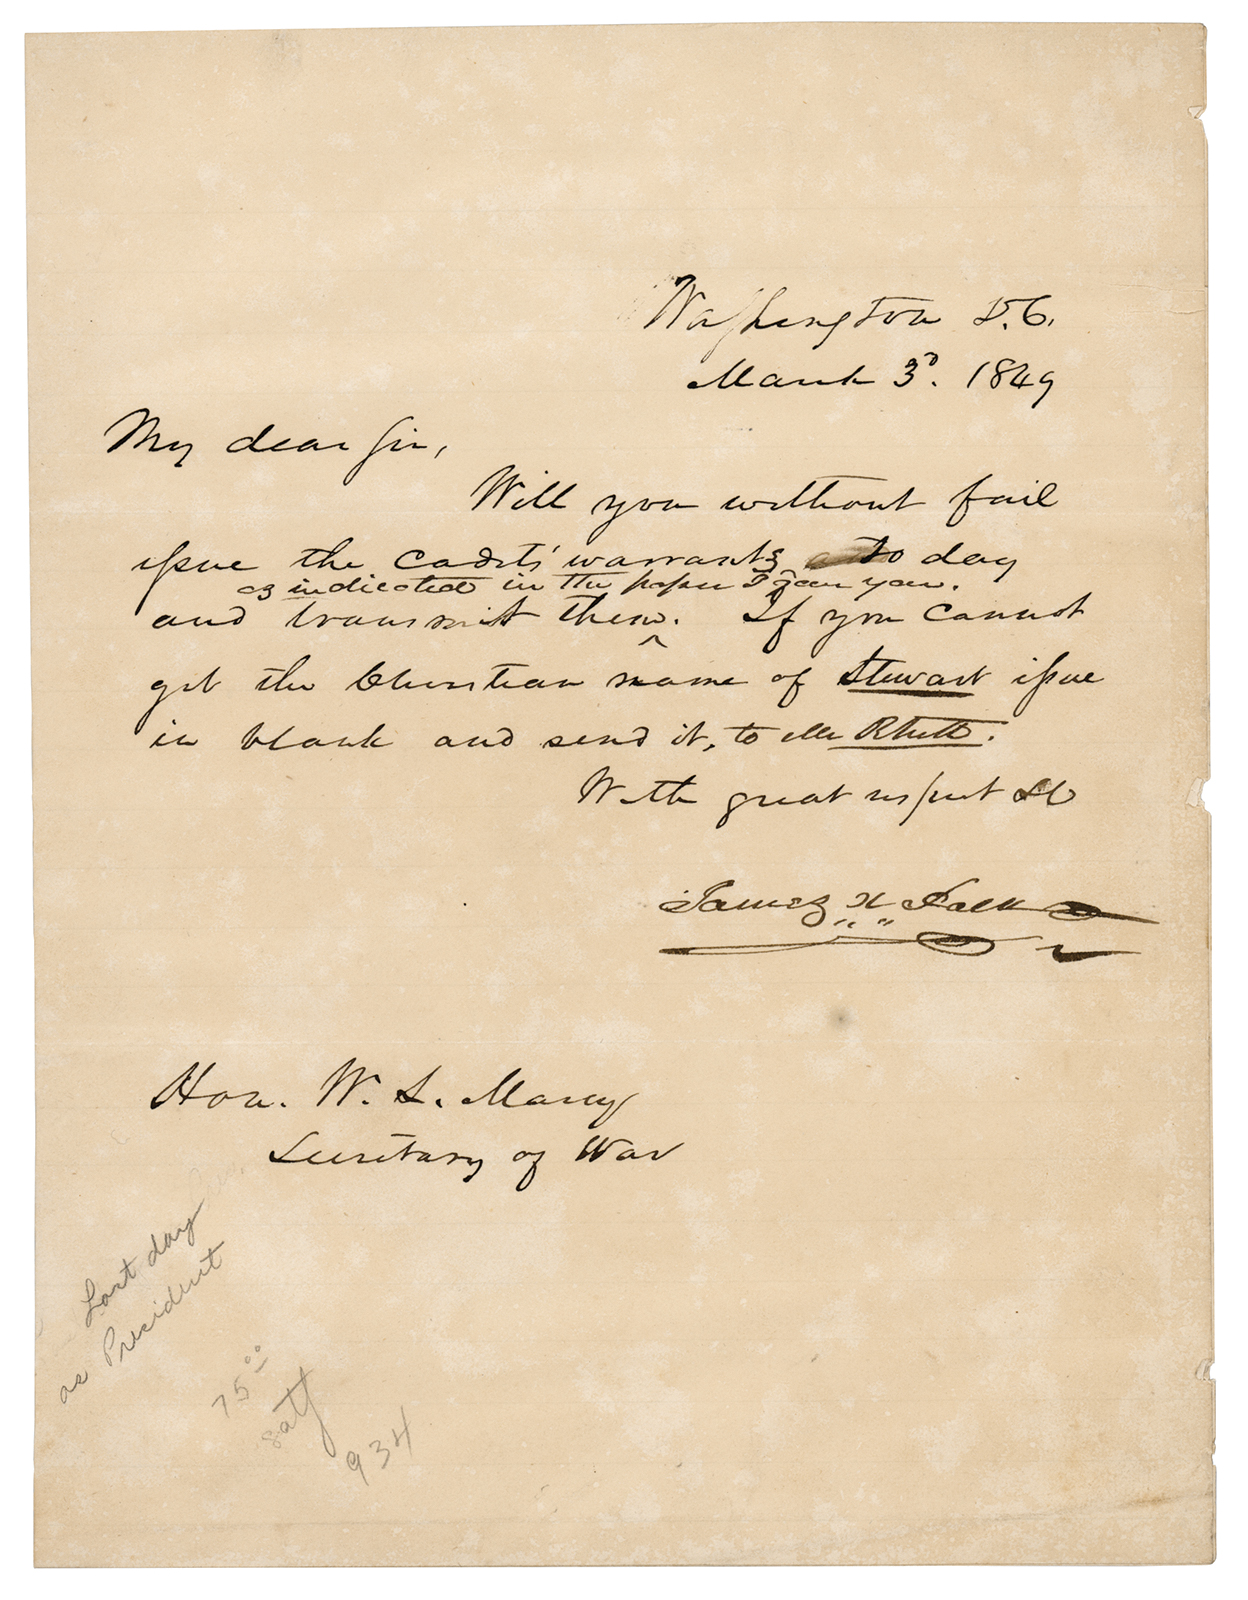 Washington D.C.
March 3d. 1849
My dear Sir,
Will you without fail
issue the cadets' warrants to day
as indicated in the paper I gave you.
and transmit them. If you cannot
get the Christian name of Stewart issue
in blank and send it, to Mr Rhett.
With great respect &c
James K Polk
Hon. W. L. Marcy
Secretary of War
Last day
as President
75.00
934